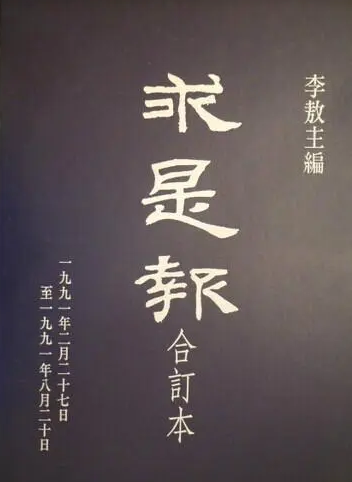 李敖主編
求是報
合訂本
一九九一年二月二十七日
至一九九一年八月二十日